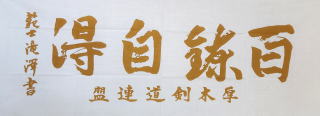 百錬自得
厚木剣道連盟
範士滝澤書